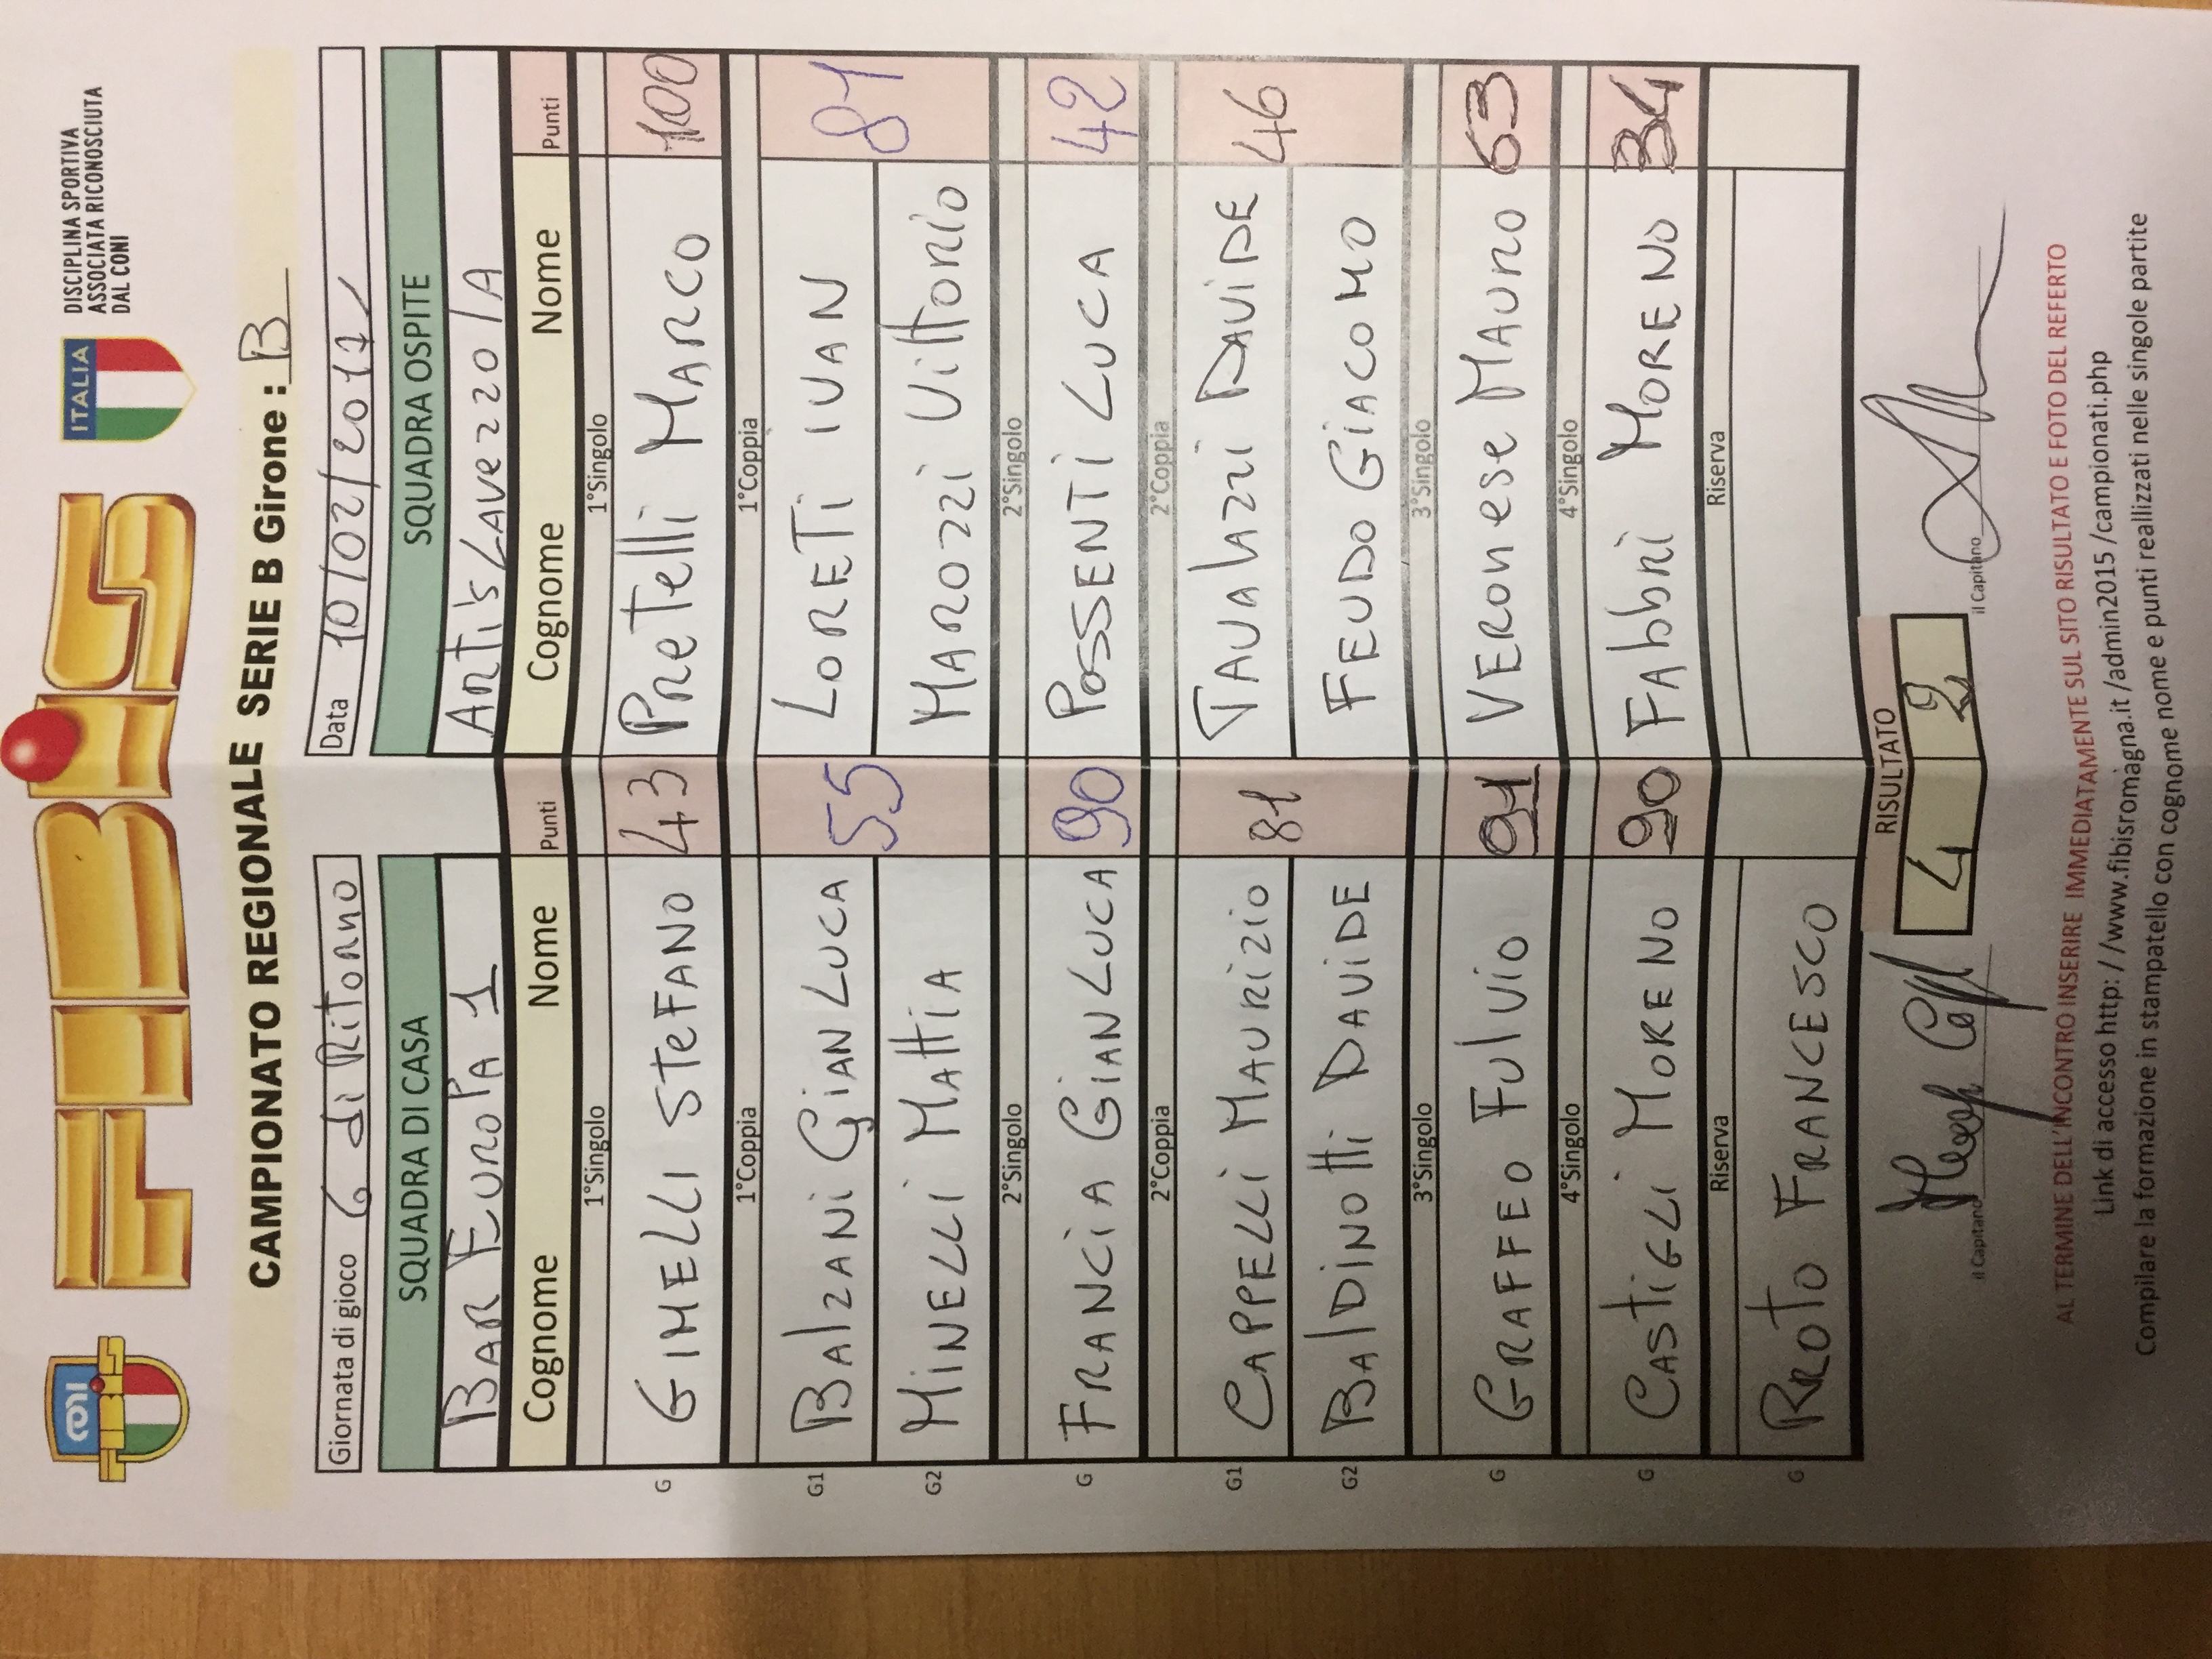 FIBiS
ITALIA
DISCIPLINA SPORTIVA
ASSOCIATA RICONOSCIUTA
DAL CONI
CAMPIONATO REGIONALE SERIE B Girone : B
Giornata di gioco 6 di Ritorno Data 10/02/2017
SQUADRA DI CASA SQUADRA OSPITE
BAR EUROPA 1 Artis LAVezzo /A
Cognome Nome Punti Cognome Nome Punti
1°Singolo 1°Singolo
G GIMELLI STeFANO 43 PReTelli MARCO 100
1°Coppia 1°Coppia
G1 BAlZANi GiANLUCA 55 LORETi IVAN 81
G2 MiNELLi MAttiA MAROZZi Vittorio
2°Singolo 2°Singolo
G FRANCiA GiANLUCA 90 POSSENTi LUCA 42
2°Coppia 2°Coppia
G1 CAPPELLi MAURIZIO 81 DAViDE 46
G2 BAlDiNOtti DAViDE FEUDO GiACOMO
3°Singolo 3°Singolo
G GRAFFEO FulViO 91 VERONese MAURO 63
4°Singolo 4°Singolo
G CAStiGLi MOReNO 90 FAbbRi MORENO 34
Riserva Riserva
G PROTO FRANCESCO
RISULTATO
il Capitano 4 2 il Capitano
AL TERMINE DELL'INCONTRO INSERIRE IMMEDIATAMENTE SUL SITO RISULTATO E FOTO DEL REFERTO
Link di accesso http: / /www.fibisromagna.it /admin2015 /campionati.php
Compilare la formazione in stampatello con cognome nome e punti reallizzati nelle singole partite